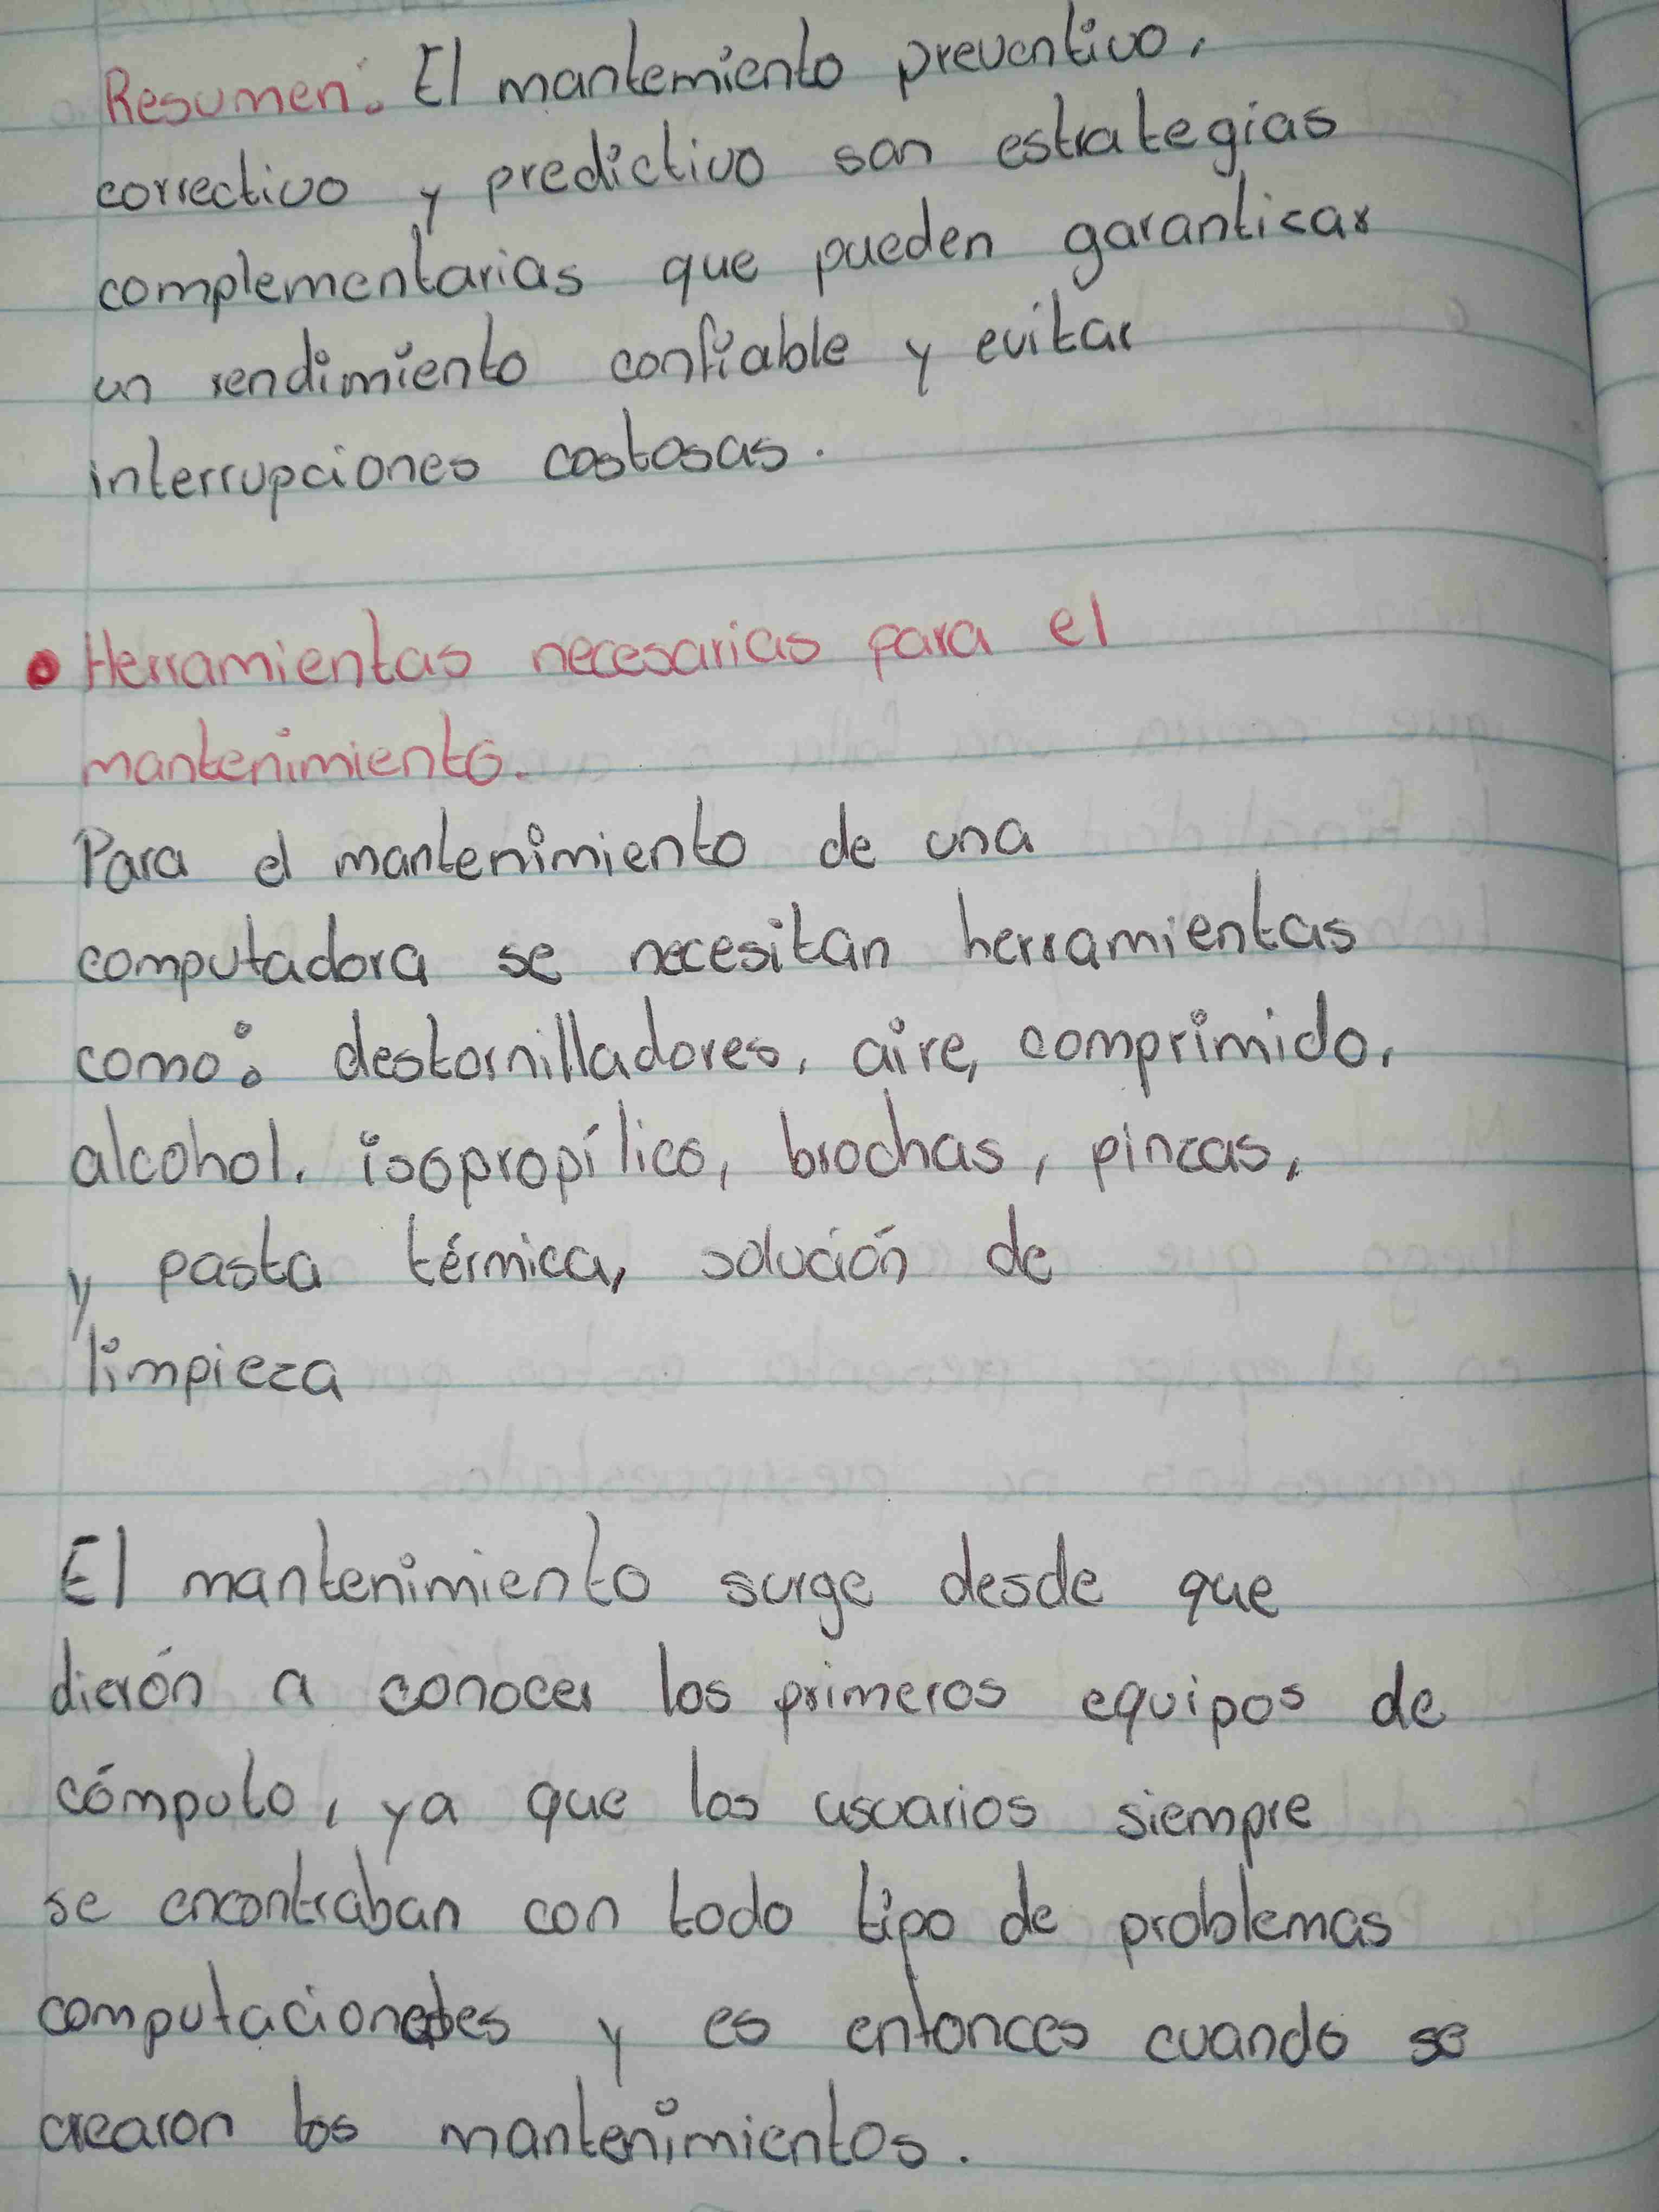 Resumen: El mantemiento preventivo,
correctivo y predictivo son estrategias
complementarias que pueden garanticar
un rendimiento confiable y evitar
interrupciones costosas.
• Herramientas necesarias para el
mantenimiento.
Para el mantenimiento de una
computadora se necesitan herramientas
como: destornilladores, aire, comprimido,
alcohol, isopropílico, brochas, pinzas,
y pasta térmica, solución de
limpieza
El mantenimiento surge desde que
dierón a conocer los primeros equipos de
cómputo, ya que los usuarios siempre
se encontraban con todo tipo de problemas
computacionales y es entonces cuando se
crearon los mantenimientos.